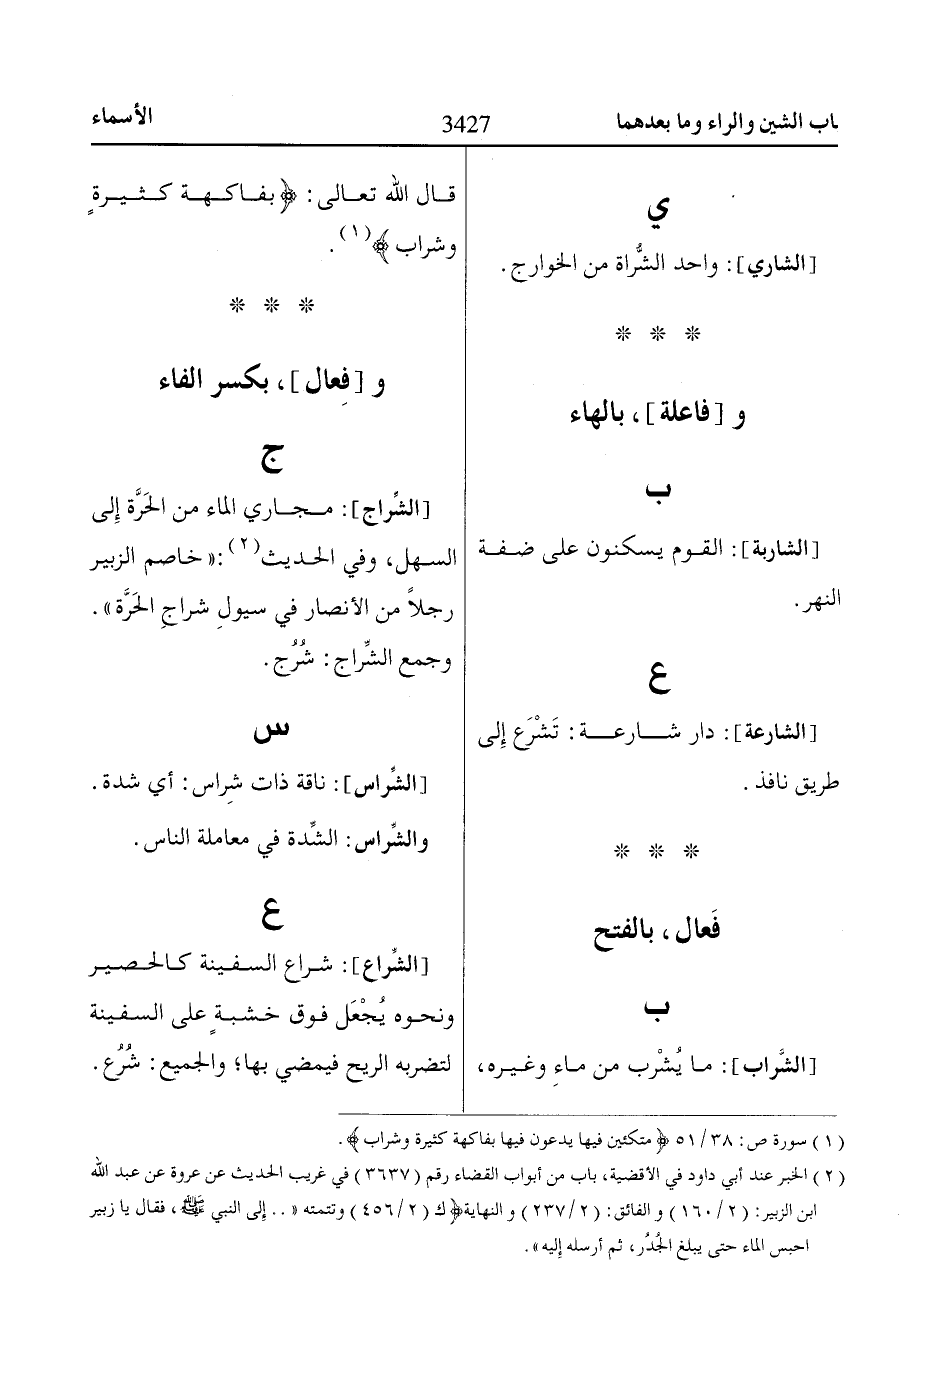 باب الشين والراء وما بعدهما
3427
الأسماء
ي
[الشاري]: واحد الشُّراة من الخوارج.
* * *
و [فاعلة]، بالهاء
ب
[الشاربة]: القوم يسكنون على ضفة
النهر.
ع
[الشارعة]: دار شارعة: تَشْرَع إلى
طريق نافذ.
* * *
فَعال، بالفتح
ب
[الشَّراب]: ما يُشْرب من ماءٍ وغيره،
قال الله تعالى: ﴿بفاكهة كثيرةٍ
وشراب﴾(١).
* * *
و [فِعال]، بكسر الفاء
ج
[الشِّراج]: مجاري الماء من الحَرَّة إلى
السهل، وفي الحديث(٢):«خاصم الزبير
رجلاً من الأنصار في سيولِ شراجِ الحَرَّة».
وجمع الشِّراج: شُرُج.
س
[الشِّراس]: ناقة ذات شِراس: أي شدة.
والشِّراس: الشِّدة في معاملة الناس.
ع
[الشِّراع]: شراع السفينة كالحصير
ونحوه يُجْعَل فوق خشبةٍ على السفينة
لتضربه الريح فيمضي بها؛ والجميع: شُرُع.
(١) سورة ص: ٥١/٣٨ ﴿متكئين فيها يدعون فيها بفاكهة كثيرة وشراب﴾.
(٢) الخبر عند أبي داود في الأقضية، باب من أبواب القضاء رقم (٣٦٣٧) في غريب الحديث عن عروة عن عبد الله
ابن الزبير: (١٦٠/٢) والفائق: (٢٣٧/٢) والنهاية﴿ك (٤٥٦/٢) وتتمته «.. إلى النبي ﷺ، فقال يا زبير
احبس الماء حتى يبلغ الجُدُر، ثم أرسله إليه».